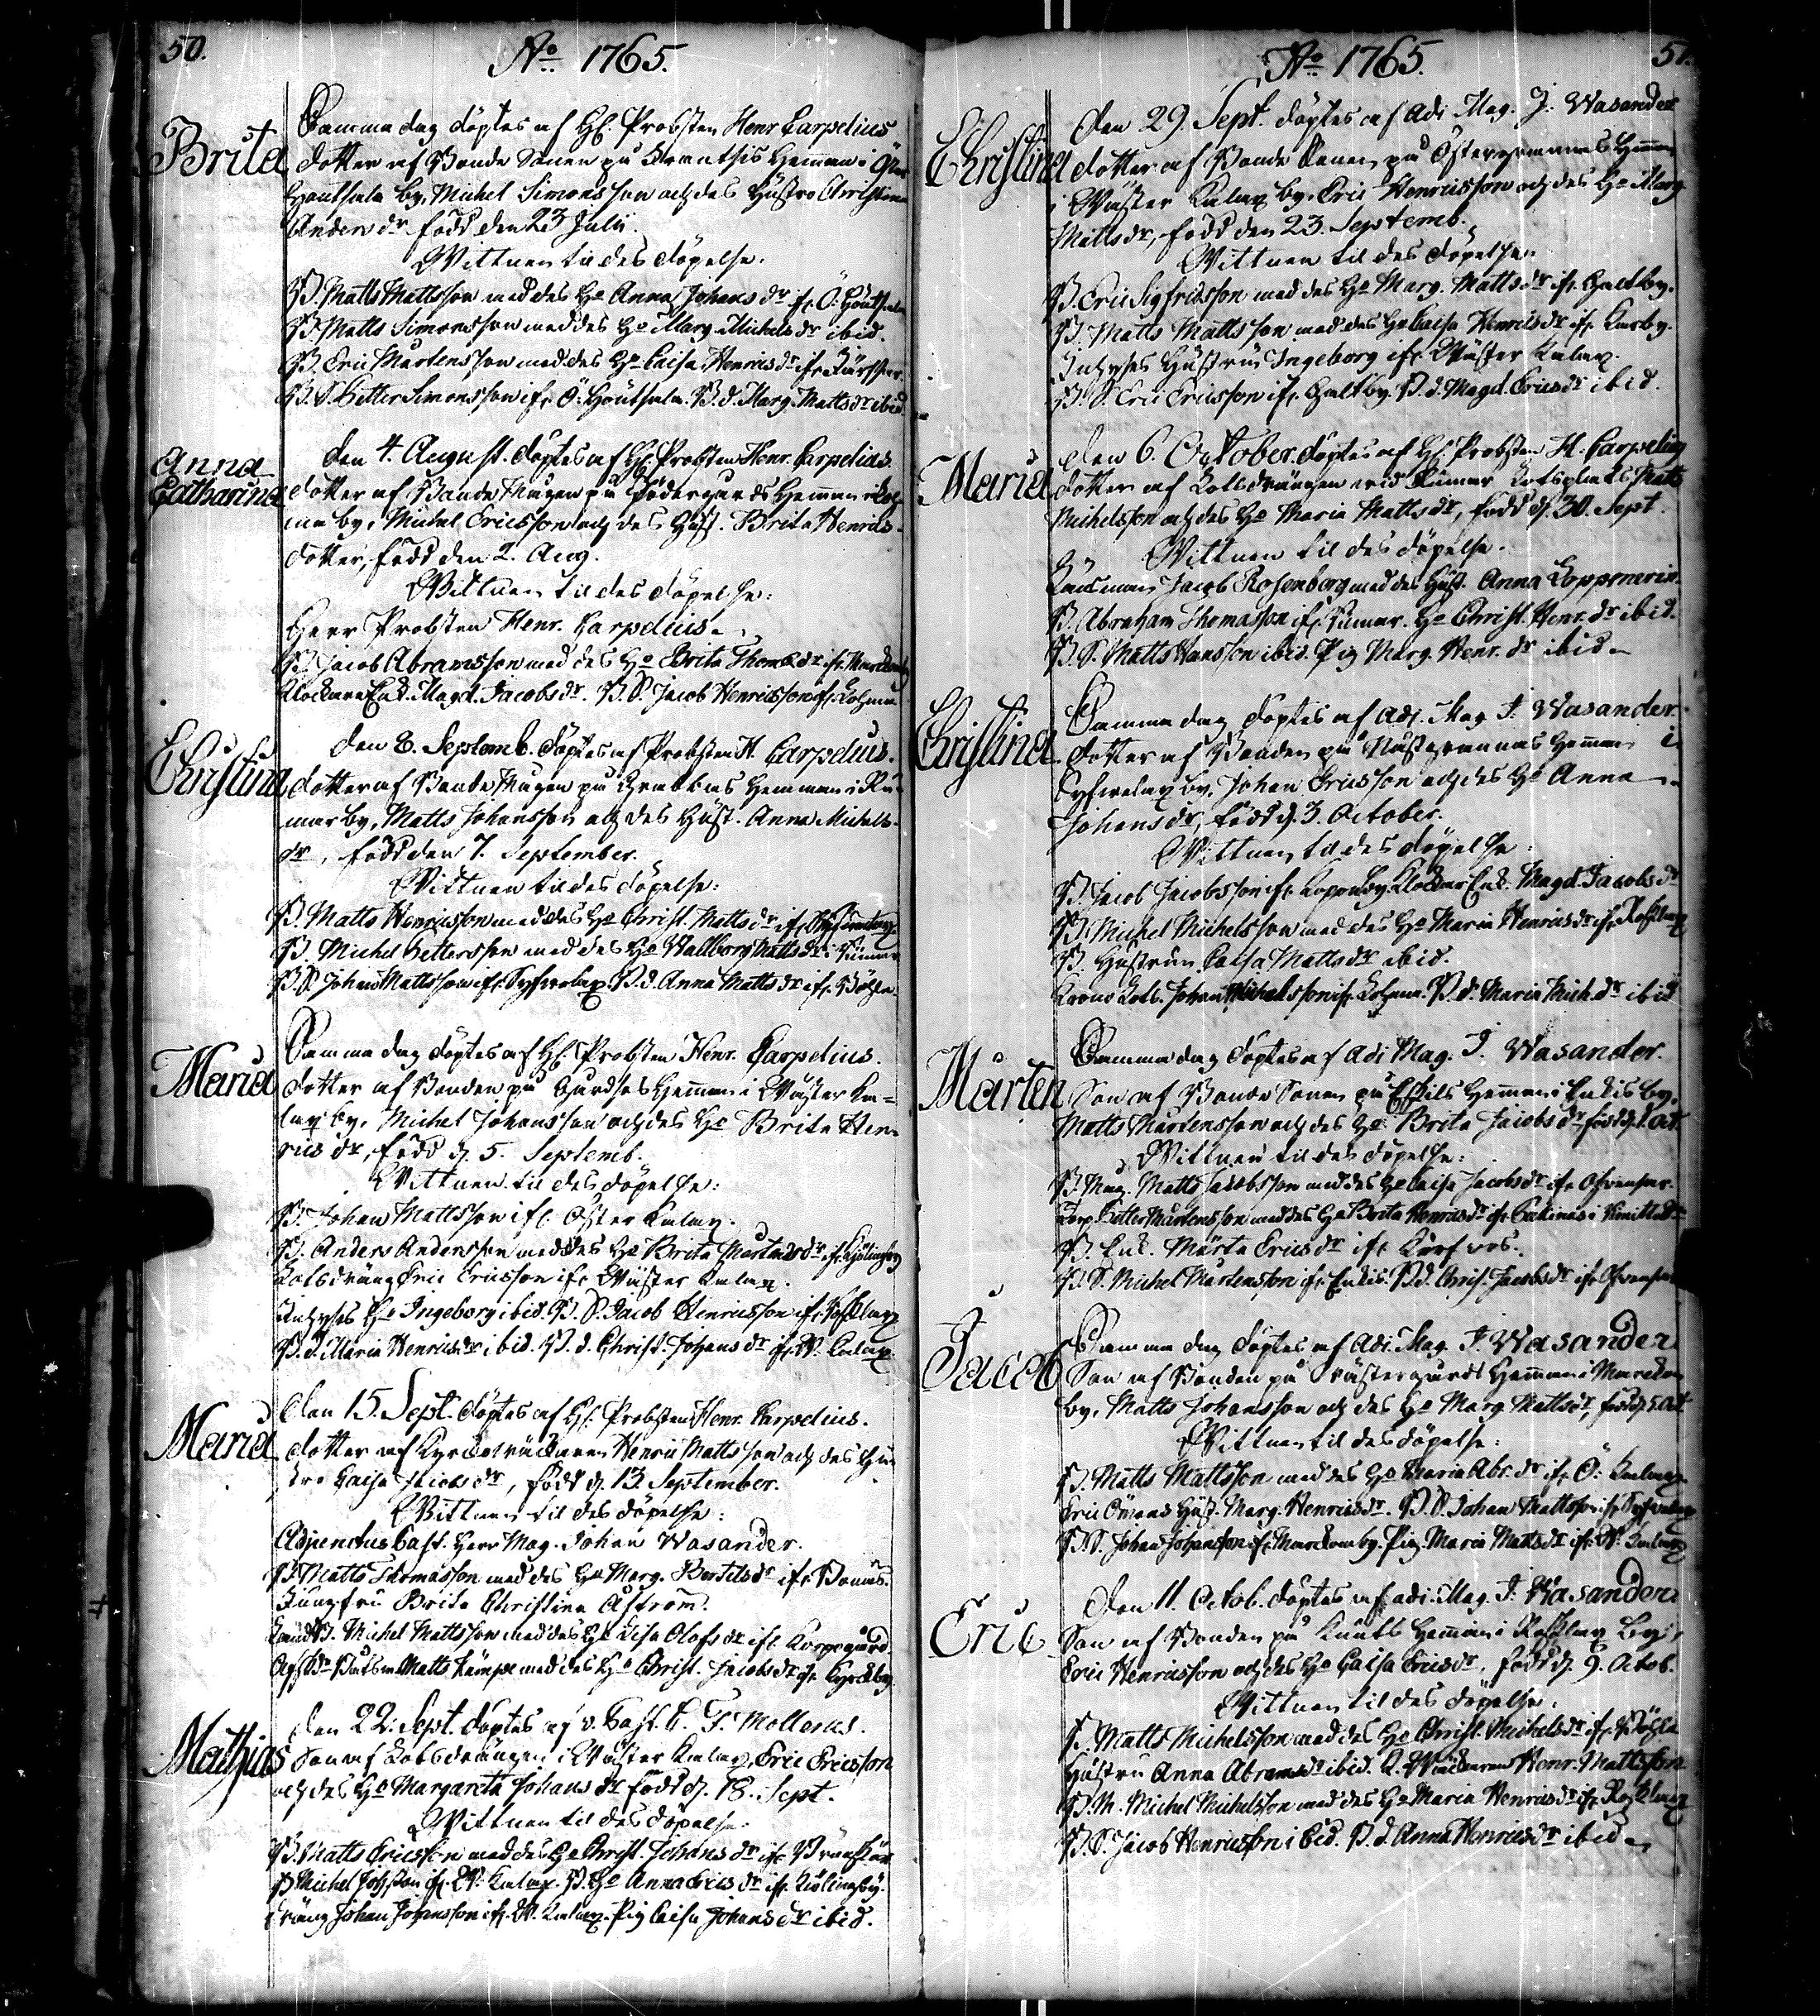 50.
No 1765.
Brita
Samma dag döptes af H. Probsten Henr Carpelius
dotter af Bonde Sonen på Hemman i Öster
by, Michel Simonsson och des Hustro Christina
Anders dr. född den 23 Julii.
Wittnen til des döpelse.
B. Matts Mattsson med des Ho Anna Johans dr ifr. Ö.
B. Matts Simonsson med des Ho Marg. Michels dr ibid.
B. Eric Mårtensson med des Ho Caisa Henrics dr ifr.
B. S. Petter Simonsson ifr. Ö. B. d. Marg. Matts dr ibid.
Anna
Catharina
den 4. August. döptes af H. Probsten Henr. Carpelius.
dotter af Bonde Mågen på Södergårds Hemman i
by, Michel Ericsson och des Hust. Brita Henrics-
dotter, född den 2. Aug.
Wittnen til des döpelse:
Herr Probsten Henr. Carpelius.
B. Jacob Abramsson med des Ho Brita Thoms dr ifr.
Klockare Enk. Magd. Jacobs dr. B. S. Jacob Henricsson ifr.
Christina
den 8. Septemb. döptes af Probsten H. Carpelius.
dotter af Bonde Mågen på Hemman i Ru-
mar by, Matts Johansson och des Hust. Anna Michels-
dr, född den 7. September.
Wittnen til des döpelse:
B. Matts Henricsson med des Ho Christ. Matts dr ifr.
B. Michel Pettersson med des Ho Wallborg Matts dr i Rumar
B. S. Johan Mattsson ifr. Tyfwelax. B. d. Anna Matts dr ifr.
Maria
Samma dag döptes af H. Probsten Henr. Carpelius.
dotter af Bonden på Hemman i Wäster Ka-
lax by, Michel Johansson och des Ho Brita Hen-
rics dr, född d. 5. Septemb.
Wittnen til des döpelse:
B. Johan Mattsson ifr. Öster Kalax.
B. Anders Andersson med des Ho Brita Mårtens dr ifr.
Lotsdräng Eric Ericsson ifr. Wäster Kalax.
Ho Ingeborg ibid. B. S. Jacob Henricsson ifr. Roslax
B. d. Maria Henrics dr ibid. B. d. Christ. Johans dr ifr. W. Kalax.
Maria
den 15. Sept. döptes af H. Probsten Henr. Carpelius.
dotter af Kyrckowäcktaren Henric Mattsson och des Hu-
stro Caisa Jacobs dr, född d. 13. September.
Wittnen til des döpelse:
Adjunctus Past. Herr Mag. Johan Wasander.
B. Matts Thomasson med des Ho Marg. Bertils dr ifr.
Jungfru Brita Christina Åström.
B. Michel Mattsson med des Ho Lisa Olofs dr ifr. Korpogård
Båtsm. Matts Kämpe med des Ho Christ. Jacobs dr ifr. Kyrckby
Mathias
den 22. Sept. döptes af v. Past. C. F. Mollerus.
Son af Lotsdrängen i Wäster Kalax, Eric Ericsson
och des Ho Margareta Johans dr född d. 18. Sept.
Wittnen til des döpelse.
B. Matts Ericsson med des Ho Christ. Johans dr ifr.
B. Michel Johsson ifr. W. Kalax. B. Ho Anna Erics dr ifr.
dräng Johan Johansson ifr. W. Kalax. Pig Caisa Johans dr ibid.
No 1765.
51.
Christina
den 29. Sept. döptes af Adj. Mag. J. Wasander
dotter af Bonde Sonen på Östergrannas Hemman
i Wäster Kalax by, Eric Henricsson och des Ho Marg.
Matts dr, född den 23. Septemb.
Wittnen til des döpelse.
B. Eric Sigfridsson med des Ho Marg. Matts dr ifr. Galtby.
B. Matts Mattsson med des Ho Caisa Henrics dr ifr.
Hustru Ingeborg ifr. Wäster Kalax.
B. S. Eric Ericsson ifr. Galtby. B. d. Magd. Erics dr ibid.
Maria
den 6. October. döptes af H. Probsten H. Carpelius
dotter af Lotsdrängen wid Rumar Lotsplats Matts
Michelsson och des Ho Maria Matts dr, född d. 30. Sept.
Wittnen til des döpelse.
Länsman Jacob Rosenberg med des Hust. Anna Kopponerin.
B. Abraham Thomasson ifr. Rumar. Ho Christ. Henr. dr ibid.
B. S. Matts Hansson ibid. Pig Marg. Henr. dr ibid.
Christina
Samma dag döptes af Adj. Mag. J. Wasander.
dotter af Bonden på Hemman i
Tyfwelax by, Johan Ericsson och des Ho Anna
Johans dr, född d. 3. October.
Wittnen til des döpelse:
B. Jacob Jacobsson ifr. Klockar Enk. Magd. Jacobs dr
B. Michel Michelsson med des Ho Maria Henrics dr ifr. Roslax
B. Hustrun Caisa Matts dr ibid.
Krono Lots. Johan Michelsson ifr. B. d. Maria Mich. dr ibid
Mårten
Samma dag döptes af Adj. Mag. J. Wasander.
Son af Bonde Sonen på Eskils Hemman i Enkis by,
Matts Mårtensson och des Ho Brita Jacobs dr född d. 1. Oct.
Wittnen til des döpelse:
B. Måg. Matts Jacobsson med des Ho Caisa Jacobs dr ifr.
Korp. Petter Mårtensson med des Ho Brita Henrics dr ifr.
B. Enk. Märta Erics dr ifr.
B. S. Michel Mårtensson ifr. Enkis. B. d. Christ. Jacobs dr ifr.
Jacob
Samma dag döptes af Adj. Mag. J. Wasander
Son af Bonden på Wästergårds Hemman i
by, Matts Johansson och des Ho Marg. Matts dr, född d. 5. Oct
Wittnen til des döpelse:
B. Matts Mattsson med des Ho Maria Abr. dr ifr. Ö. Kalax.
Eric Hust. Marg. Henrics dr. B. S. Johan Mattsson ifr. Tyfwelax
B. S. Johan Johansson ifr. Pig. Maria Matts dr ifr. W. Kalax
Eric
Den 11. Octob. döptes af adj. Mag. J. Wasander
Son af Bonden på Knuts Hemman i Roslax by,
Eric Henricsson och des Ho Caisa Erics dr, född d. 9. Octob.
Wittnen til des döpelse.
B. Matts Michelsson med des Ho Christ. Michels dr ifr.
Hustru Anna Abrams dr ibid. K. Wäcktaren Henr. Mattsson
B. M. Michel Michelsson med des Ho Maria Henrics dr ifr. Roslax
B. S. Jacob Henricsson ibid. B. d. Anna Henrics dr ibid.